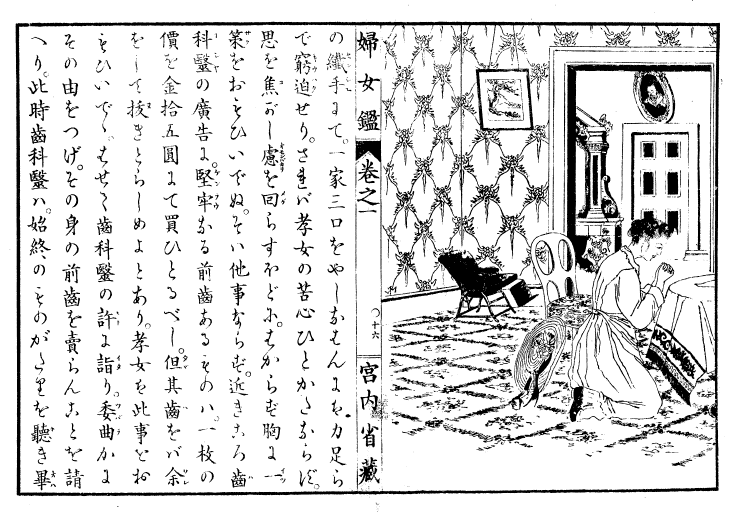 婦女鑑 卷之一 〇十六 宮内省藏
の纖手にて。一家三口をやしなはんには。力足ら
で窮迫せり。されば孝女の苦心ひとかたならず。
思を焦がし慮を回らすほどに。はからず胸に一
策をおもひいでぬ。そは他事ならず。近きころ齒
科醫の廣告に。堅牢なる前齒あるものハ。一枚の
價を金拾五圓にて買ひとるべし。但其齒をバ余
をして抜きとらしめよとあり。孝女を此事をお
もひいでゝ。はせて齒科醫の許に詣り。委曲かに
その由をつげ。その身の前齒を賣らんことを請
へり。此時齒科醫ハ。始終のものがたりを聽き畢